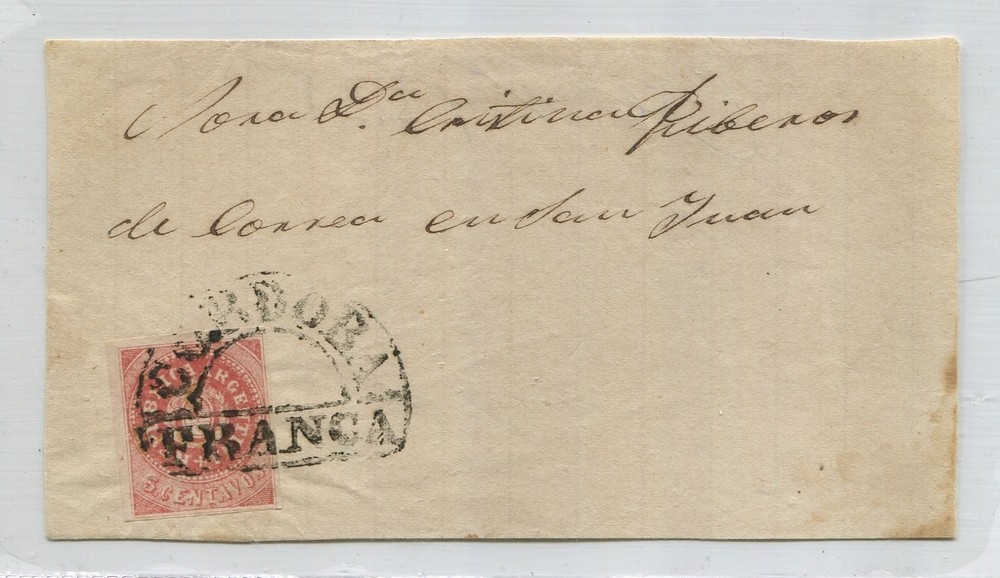 Sora Da. Cristina Riberos
de Correa en San Juan
CORDOBA
FRANCA
REPUBLICA ARGENTINA
5 CENTAVOS